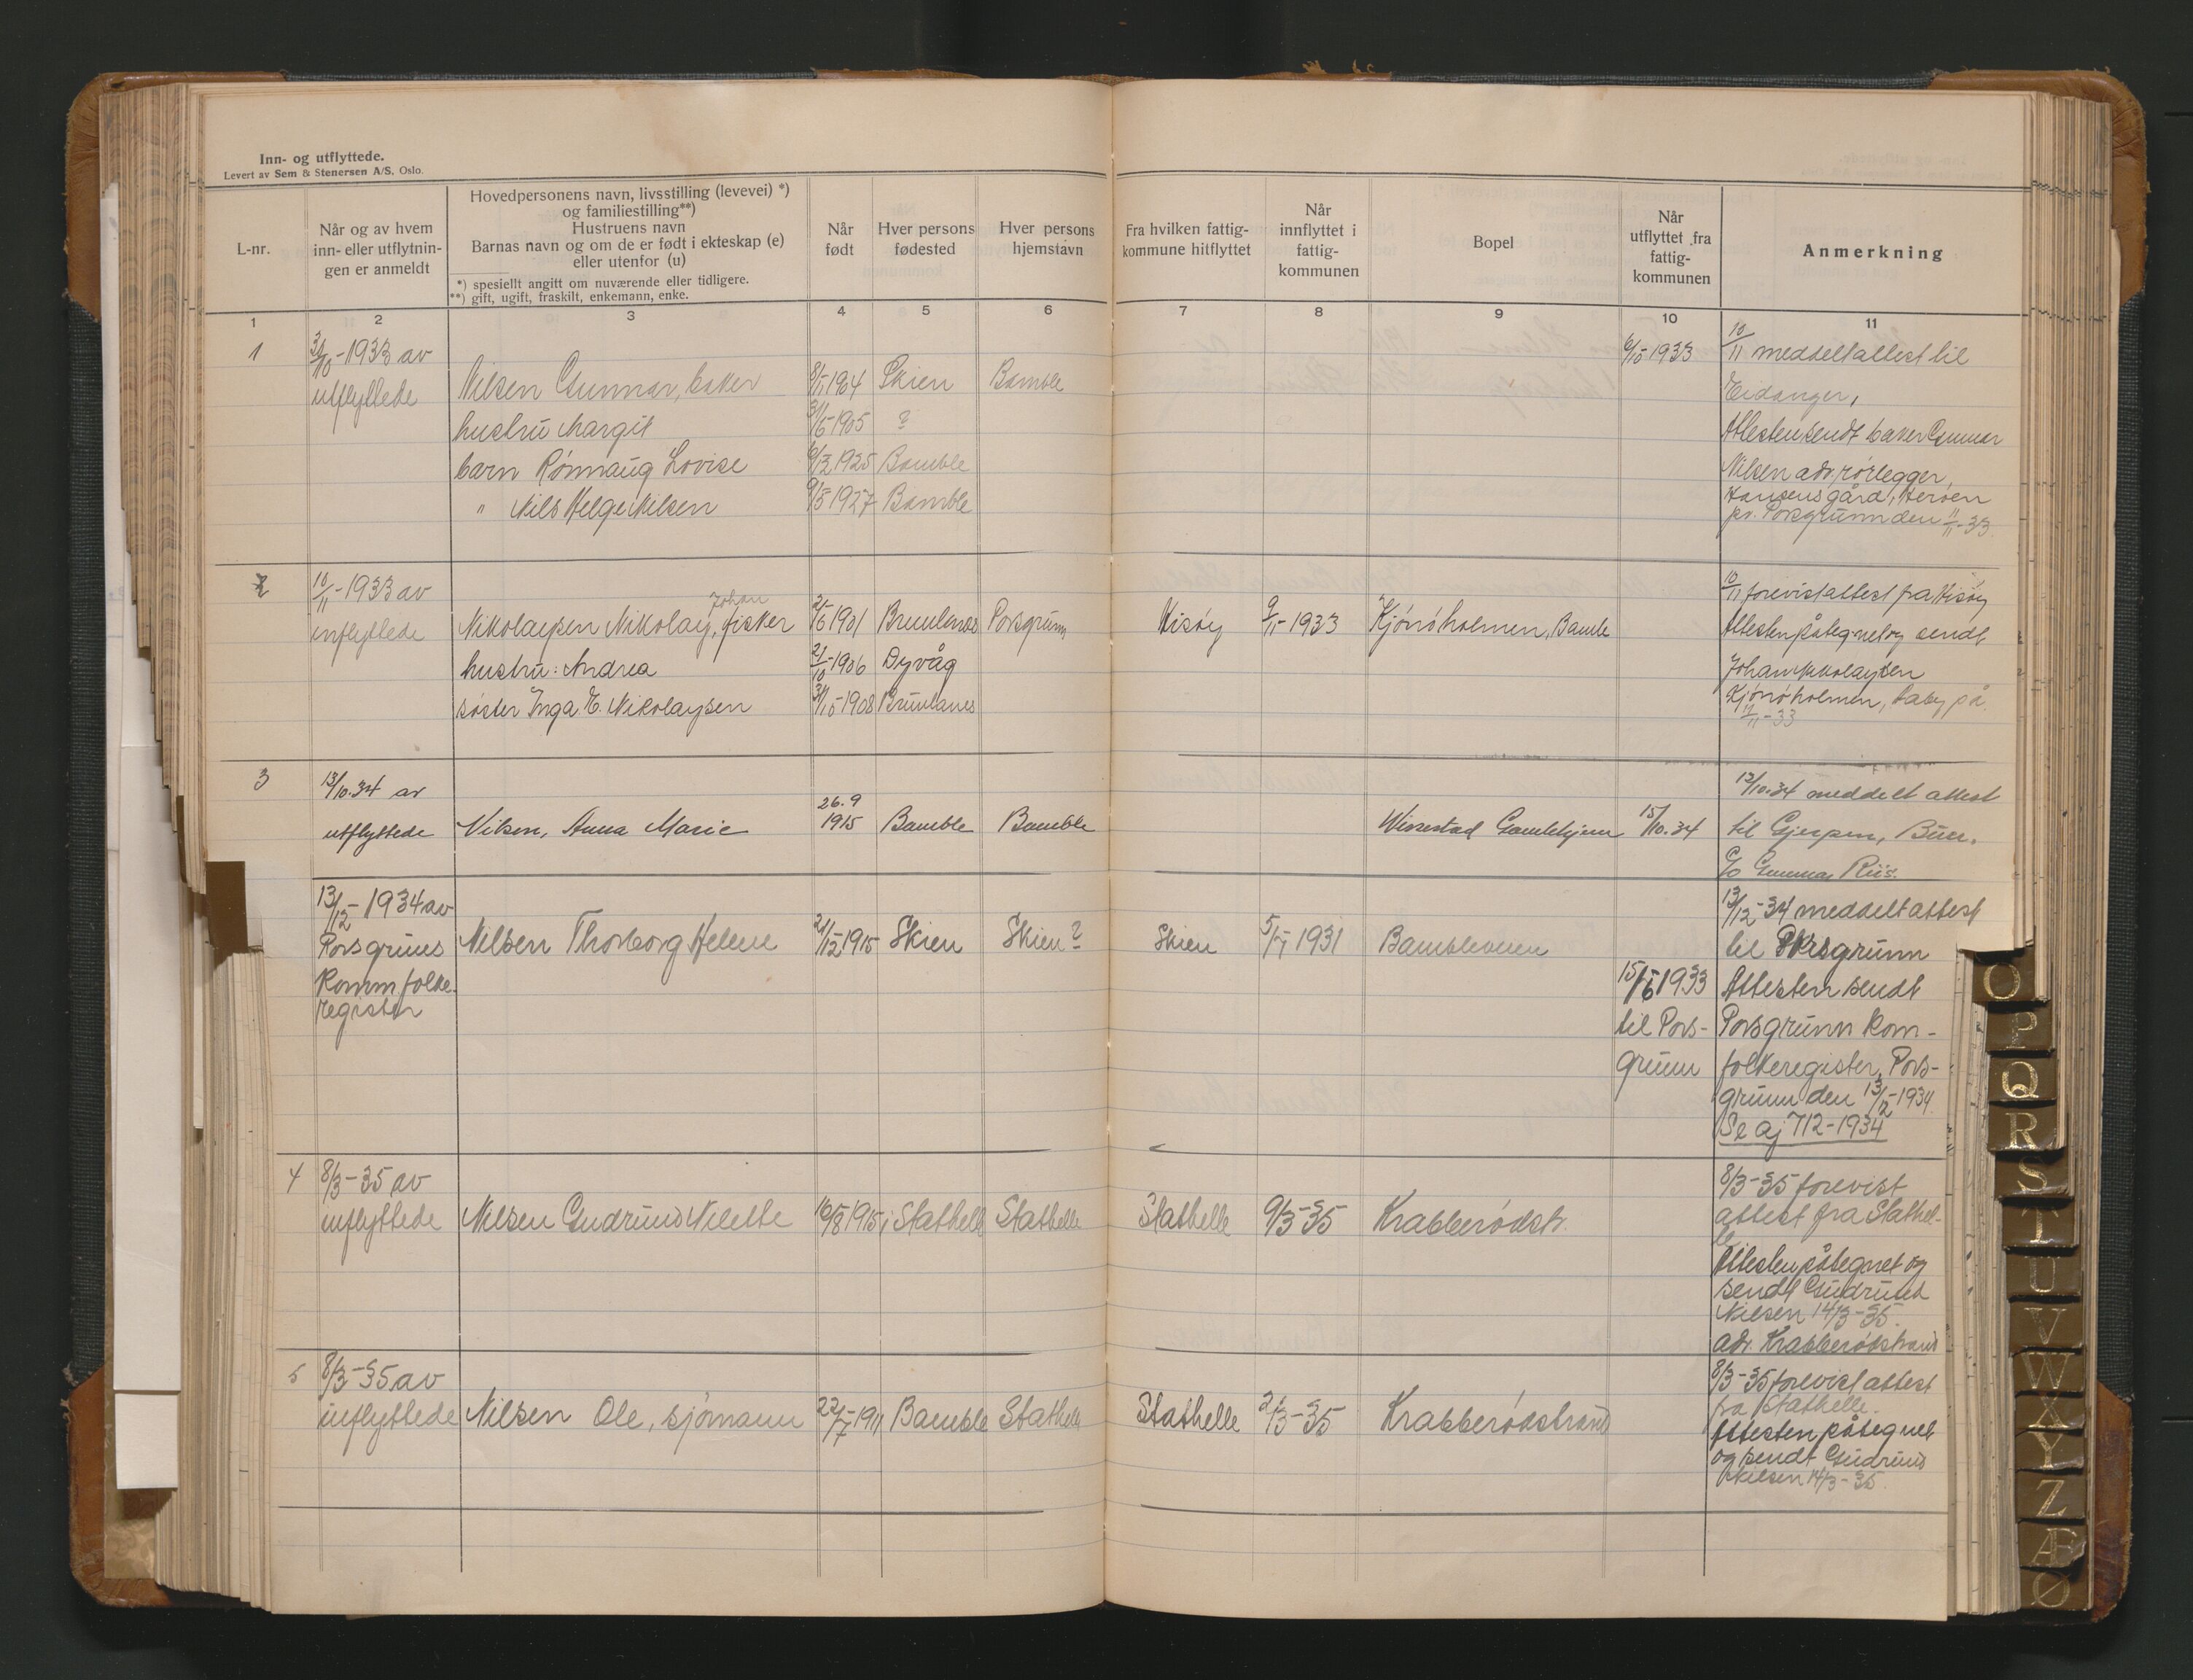 Inn- og utflyttede.
Levert av Sem & Stenersen A/S, Oslo.
L-nr.
Når og av hvem
inn- eller utflytnin-
gen er anmeldt
Hovedpersonens navn, livsstilling (levevei) *)
og familiestilling**)
Hustruens navn
Barnas navn og om de er født i ekteskap (e)
eller utenfor (u)
*) spesiellt angitt om nuværende eller tidligere.
**) gift, ugift, fraskilt, enkemann, enke.
Når
født
Hver persons
fødested
Hver persons
hjemstavn
Fra hvilken fattig-
kommune hitflyttet
Når
innflyttet i
fattig-
kommunen
Bopel
Når
utflyttet fra
fattig-
kommunen
Anmerkning
1 2 3 4 5 6 7 8 9 10 11
1 -1933 av 6/10-1933 10/11 meddelt attest til
utflyttede Nilsen Gunnar, baker 1904 Skien Bamble Eidanger,
hustru Margit 1905 ? Attesten sendt baker Gunnar
barn Rønnaug Lovise 1925 Bamble Nilsen adr. rørlegger,
" Nils Helge Nilsen 1927 Bamble Hansens gård, Herøen
pr. Porsgrunn den 11/11-33
2 10/11-1933 av 10/11 forevist attest fra Hisøy
innflyttede Nikolaysen Nikolay Johan, fisker 1901 Brunlanes Porsgrunn Hisøy 9/11-1933 Kjønøholmen, Bamble Attesten påtegnet og sendt
hustru: Andrea 2/10-1906 Dyvåg Johan Nikolaysen
søster Inga E. Nikolaysen 1908 Brunlanes Kjønøholmen,
11/11-33
3 13/10.34 av 26.9 13/10.34 meddelt attest
utflyttede Nilsen, Anna Marie 1915 Bamble Bamble Wissestad Gamlehjem 15/10.34 til Gjerpen,
c/o Gunnar Riis.
13/12-1934 av 13/12-34 meddelt attest
Porsgruns Nilsen Thorborg Helene 21/12-1915 Skien Skien? Skien 1931 Bambleveien til Porsgrunn
Komm. folke- 15/6 1933 Attesten sendt
register til Pors- Porsgrunn Kom-
grunn folkeregister, Pors-
grunn den 13/12-1934.
Se aj 712-1934
4 8/3-35 av 8/3-35 forevist
innflyttede Nilsen Gudrun 16/8 1915 Stathelle Stathelle Stathelle 9/3-35 Krabberødstr. attest fra Stathel-
le
Attesten påtegnet og
sendt Gudrun
Nilsen 14/3-35.
adr. Krabberødstrand
5 8/3-35 av 8/3-35 forevist attest
innflyttede Nilsen Ole, sjømann 22/7-1911 Bamble Stathelle Stathelle 2/3-35 Krabberødstrand fra Stathelle.
Attesten påtegnet
og sendt Gudrun
Nilsen 14/3-35.
O
P
Q
R
S
T
U
V
W
X
Y
Z
Æ
Ø